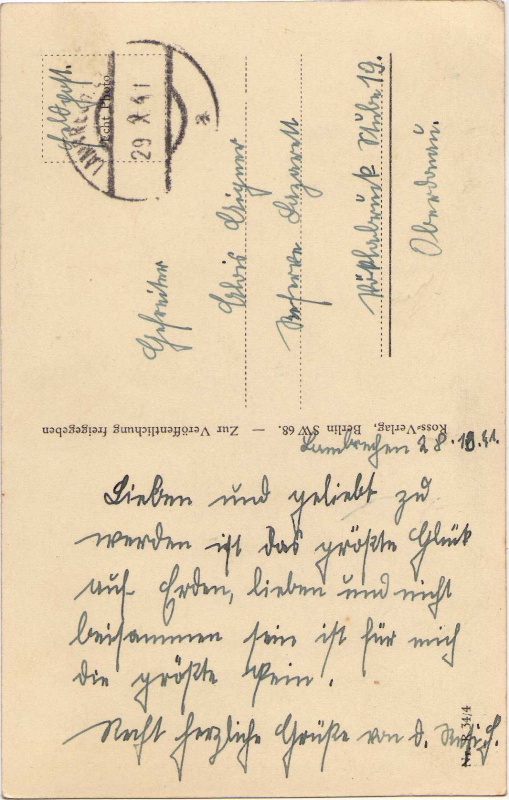 Feldpost.
Echt Photo
LAMBRECH
29 X 41
*
Gefreiter
Alois Aigner
Reserve Lazarett
Vöcklabruck Stube 19.
Oberdonau.
Ross-Verlag, Berlin SW 68. — Zur Veröffentlichung freigegeben
Lambrechen 28.10.41.
Lieben und geliebt zu
werden ist das größte Glück
auf Erden, lieben und nicht
beisammen sein ist für mich
die größte Pein.
Recht herzliche Grüße von d.
Nr. R 34/4